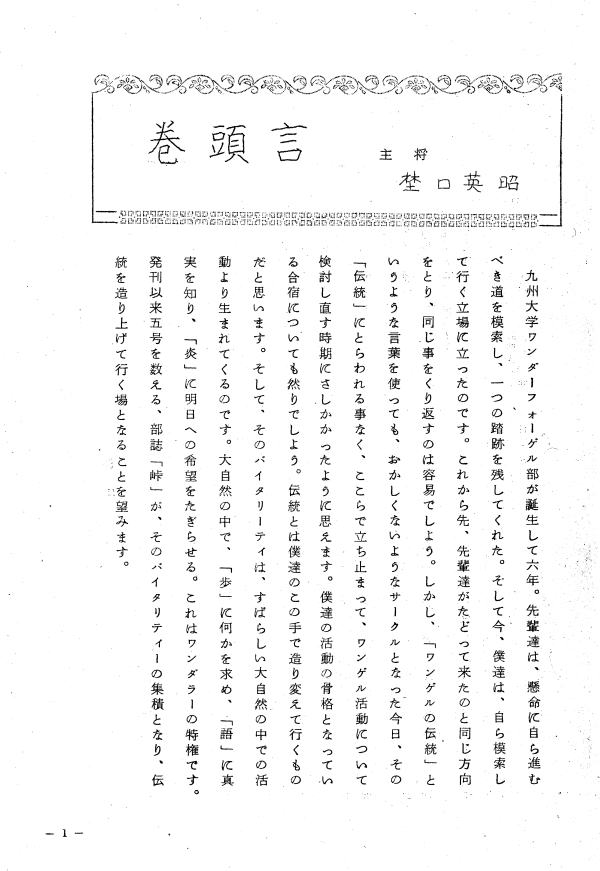 巻頭言
主将
埜口英昭
九州大学ワンダーフォーゲル部が誕生して六年。先輩達は、懸命に自ら進む
べき道を模索し、一つの踏跡を残してくれた。そして今、僕達は、自ら模索し
て行く立場に立ったのです。これから先、先輩達がたどって来たのと同じ方向
をとり、同じ事をくり返すのは容易でしよう。しかし、「ワンゲルの伝統」と
いうような言葉を使っても、おかしくないようなサークルとなった今日、その
「伝統」にとらわれる事なく、ここらで立ち止まって、ワンゲル活動について
検討し直す時期にさしかかったように思えます。僕達の活動の骨格となってい
る合宿についても然りでしよう。伝統とは僕達のこの手で造り変えて行くもの
だと思います。そして、そのバイタリーティは、すばらしい大自然の中での活
動より生まれてくるのです。大自然の中で、「歩」に何かを求め、「語」に真
実を知り、「炎」に明日への希望をたぎらせる。これはワンダラーの特権です。
発刊以来五号を数える、部誌「峠」が、そのバイタリティーの集積となり、伝
統を造り上げて行く場となることを望みます。
— 1 —